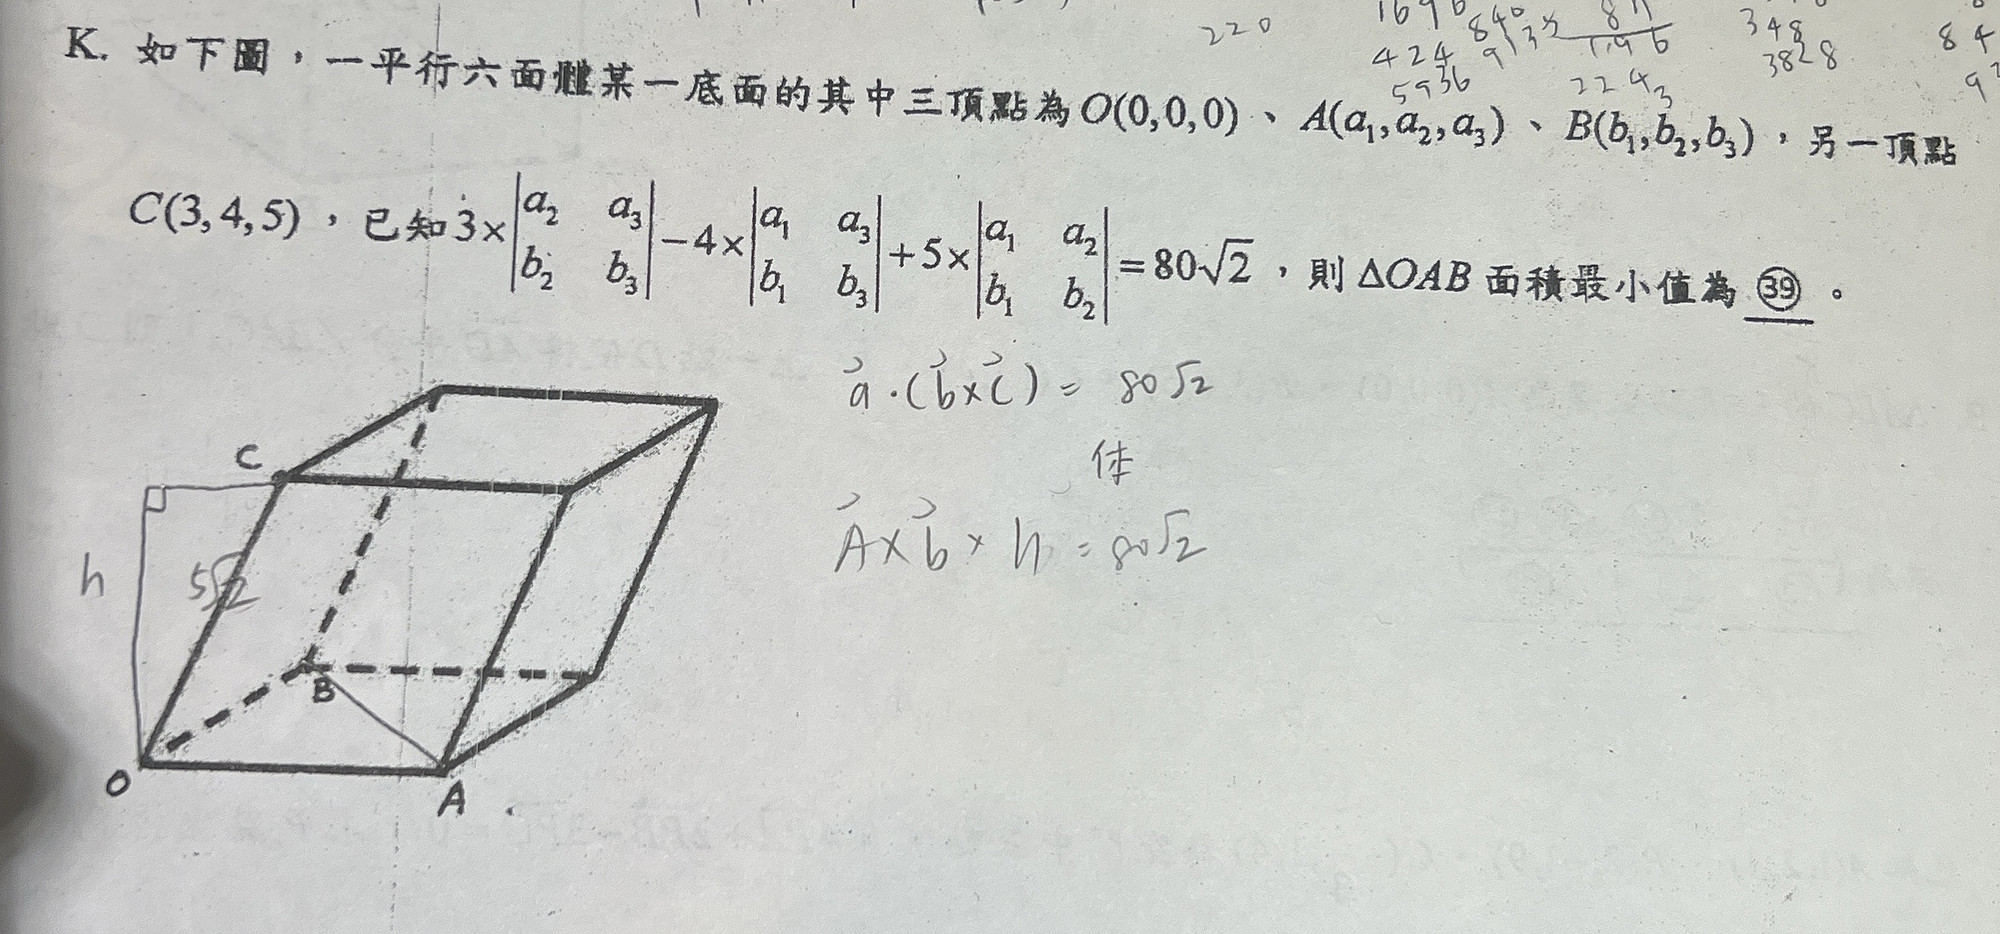 220
424
5936
840
9135
196
2243
348
3828
84
K. 如下圖，一平行六面體某一底面的其中三頂點為O(0,0,0)、A(a₁,a₂,a₃)、B(b₁,b₂,b₃)，另一頂點
C(3,4,5)，已知3×|a₂ a₃; b₂ b₃|−4×|a₁ a₃; b₁ b₃|+5×|a₁ a₂; b₁ b₂|=80√2，則ΔOAB面積最小值為㊴。
a⃗·(b⃗×c⃗)= 80√2
体
A⃗×b⃗×h=80√2
C
h
5√2
B
O
A